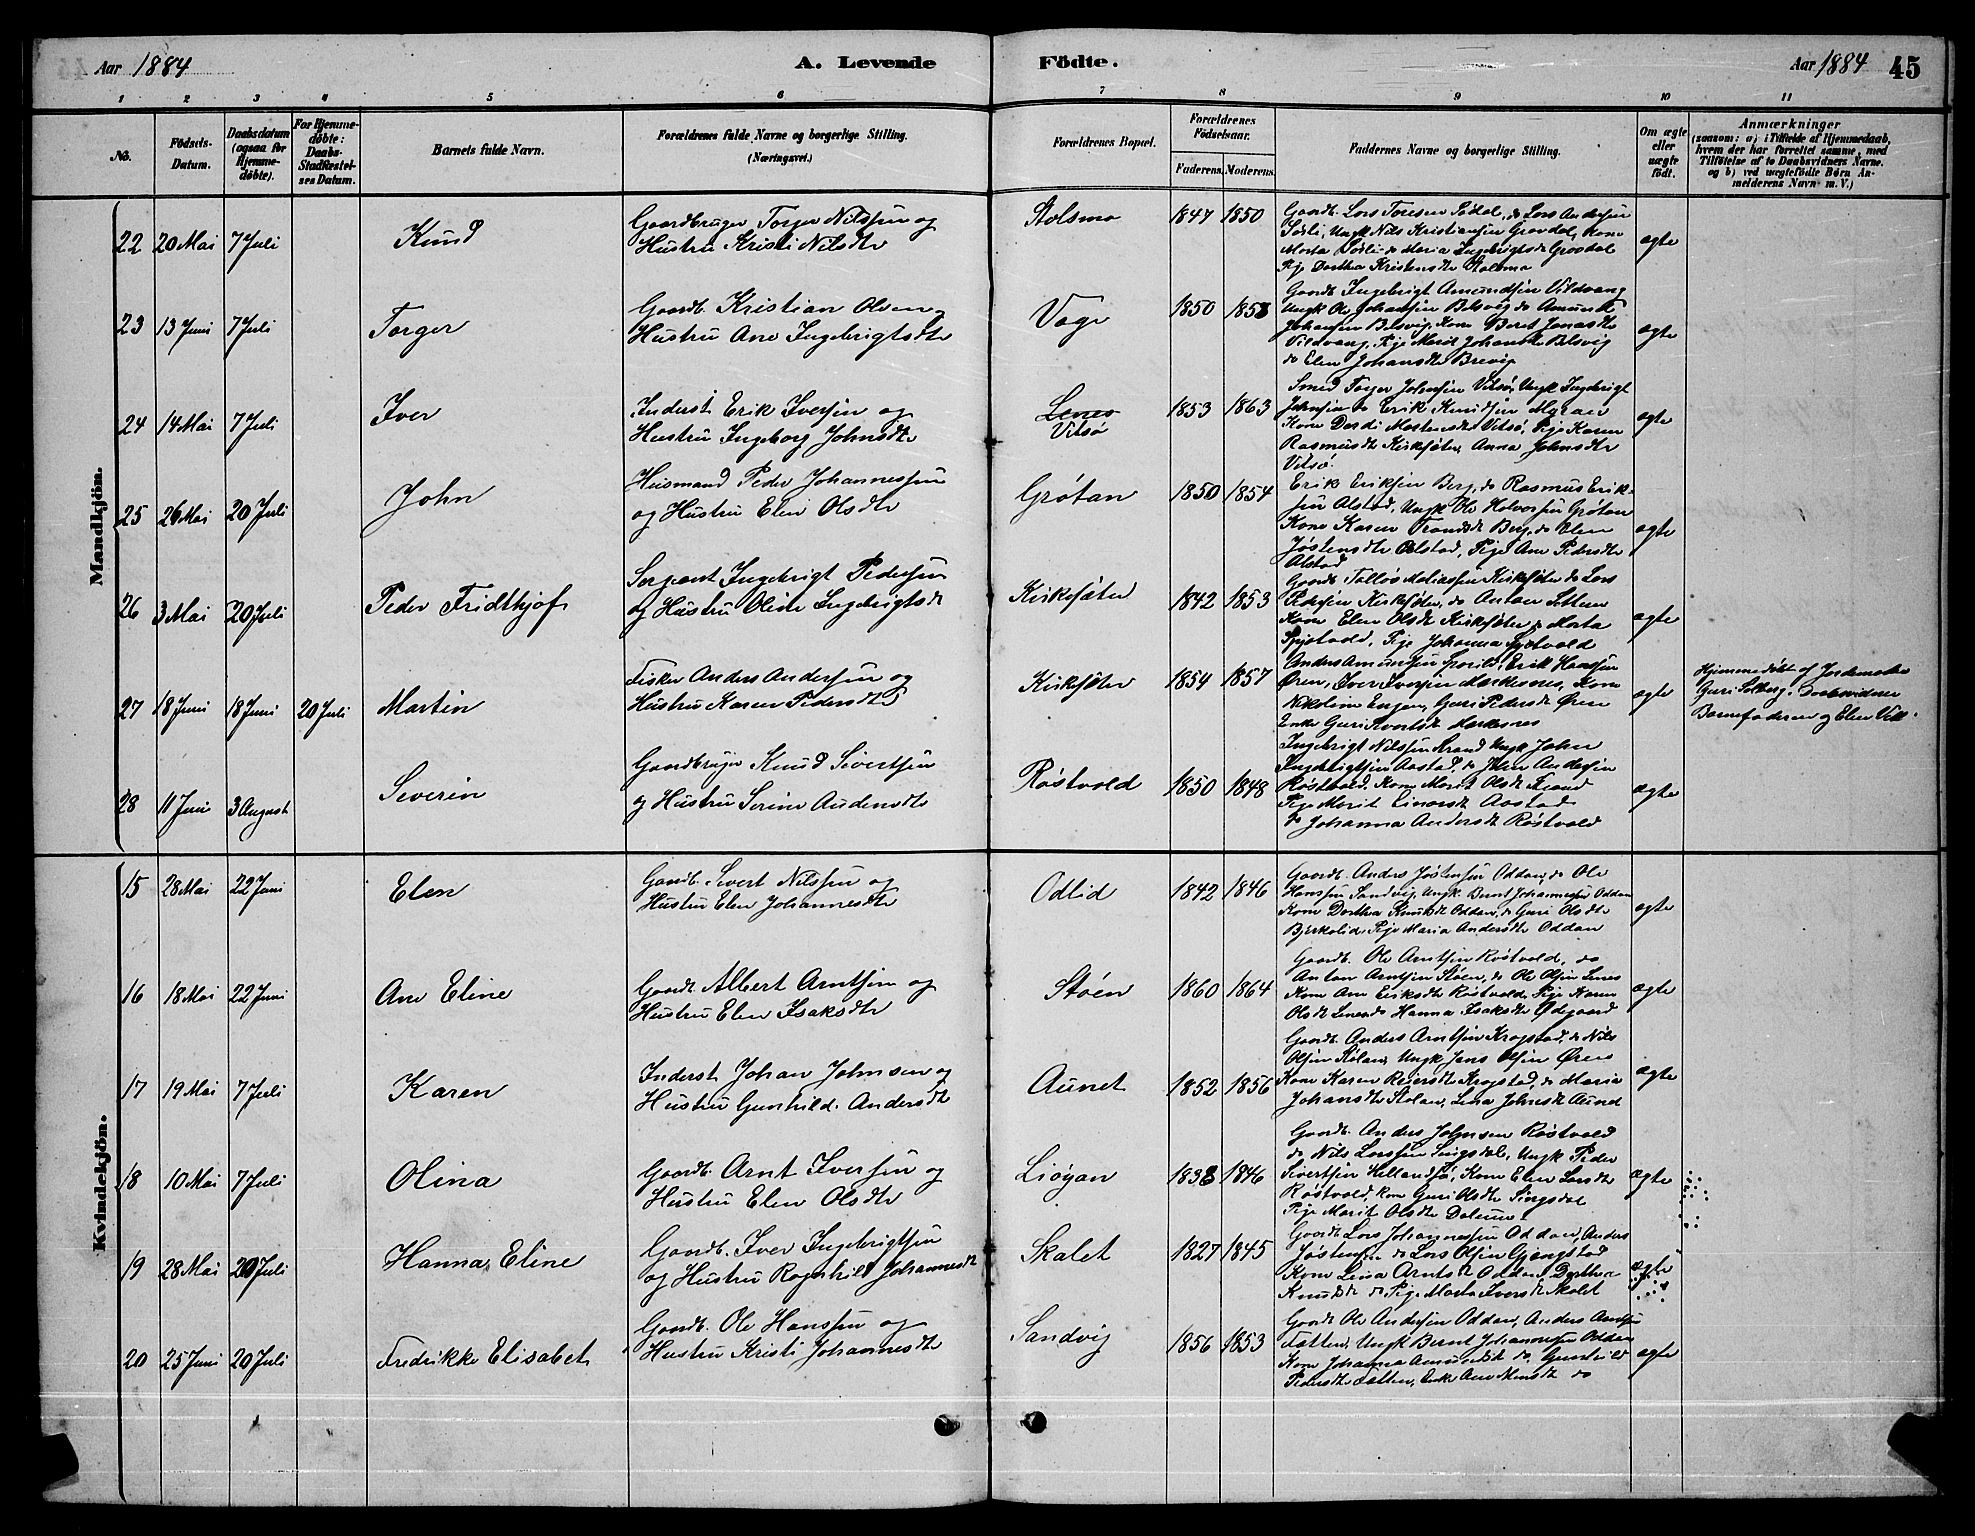 Aar 1884 A. Levende Födte. Aar 1884 45
1 2 3 4 5 6 7 8 9 10 11
No.
Födsels-Datum.
Daabsdatum (ogsaa for Hjemme-døbte).
For Hjemme-døbte: Daabs-Stadfæstelses Datum.
Barnets fulde Navn.
Forældrenes fulde Navne og borgerlige Stilling.
(Næringsvei.)
Forældrenes Bopæl.
Forældrenes Födselsaar.
Faderens. Moderens.
Faddernes Navne og borgerlige Stilling.
Om ægte eller uægte födt.
Anmærkninger
(saasom: a) i Tilfælde af Hjemmedaab,
hvem der har forrettet samme, med
Tilföielse af to Daabsvidners Navne.
og b) ved uægtefödte Börn An-
melderens Navn m. V.)
Mandkjön.
22 20 Mai 7 Juli Knud
Gaardbruger Torger Nilssen og
Hustru Kristi Nilsdtr
Stolsmo 1847 1850
Gaardb. Lars Toresen Sødal, do Lars Andersen
Sødli, Ungk Nils Kristiansen Grovdal, Kone
Marta Sødli do Maria Ingebrigtsdt Grovdal
Pije Dorthea Kristensdtr Stolsmo
ægte
23 13 Juni 7 Juli Torger
Gaardb. Kristian Olsen og
Hustru Ane Ingebrigtsdtr
Vage 1850 1858
Gaardb Ingebrigt Amundsen Vildvang
Ungk Ole Johansen Belsvig do Amund
Johansen Belsvig, Kone Beret Jonasdtr
Vildvang, Pije Marit Johansdt Belsvig
do Elen Johansdtr Brevig
ægte
24 14 Mai 7 Juli Iver
Inderst Erik Iversen og
Hustru Ingeborg Johnsdtr
Lenes
Vitsø
1853 1863
Smed Torger Johnsen Vitsø, Ungk Ingebrigt
Johnsen do Erik Knudsen Myran
Kone Dordi Mortensdtr Vitsø, Pije Karen
Rasmusdtr Kirksæter, Anna Johnsdtr
Vitsø.
ægte
25 26 Mai 20 Juli John
Husmand Peder Johannessen
og Hustru Elen Olsdtr
Grøtan 1850 1854
Erik Eriksen Berg, do Rasmus Erik-
sen Alstad, Ungk Ole Halvorsen Grøtan
Kone Karen Berg, do Elen
Jøstensdtr Alstad, Pije Ane Pedersdtr
Alstad
ægte
26 3 Mai 20 Juli Peder Fridthjof
Sergeant Ingebrigt Pedersen
og Hustru Oline Ingebrigtsdt
Kirksæter 1842 1853
Gaardb. Kirksæter do Lars
Pedersen Kirksæter, do Anton
Kone Elen Olsdt Kirksæter do Marta
Pije Johanna
ægte
27 18 Juni 18 Juni 20 Juli Martin
Fisker Anders Andersen og
Hustru Karen Pedersdtr
Kirksæter 1854 1857
Anders Amundsen Erik Hansen
Øren, Iver Iversen Kone
Nikoline Engan, Guri Pedersdt Øren
Enke Guri
ægte
Hjemmedøbt af Jordemoder
Guri Solberg. Daabsvidner
Barnefaderen og Elen
28 11 Juni 3 August Severin
Gaardbruger Knud Sivertsen
og Hustru Serine Andersdtr
Røstvold 1850 1848
Ingebrigt Nilssen Strand Ungk John
Ingebrigtsen Aastad, do John Andersen
Røstvold. Kone Marit Olsdt
Pije Marit Einarsdt Aastad
do Johanna Andersdt Røstvold
ægte
Kvindekjön.
15 28 Mai 22 Juni Elen
Gaardb. Sivert Nilssen og
Hustru Elen Johannesdtr
Odlid 1842 1846
Gaardb. Anders Jøstensen Oddan, do Ole
Hanssen Sandvig, Ungk Bernt Johannessen Oddan
Kone Dorthea Knudsdt Oddan, do Guri Olsdtr
Bjerkelid, Pije Maria Andersdtr Oddan
ægte
16 18 Mai 22 Juni Ane Eline
Gaardb Albert Arntsen og
Hustru Elen Isaksdtr
Støen 1860 1864
Gaardb. Ole Arntsen Røstvold, do
Anton Arntsen Støen, do Ole Olsen Lenes
Kone Ane Eriksdtr Røstvold, Pije Karen
Olsdt Lenes do Hanna Isaksdtr Ødegaard
ægte
17 19 Mai 7 Juli Karen
Inderst Johan Johnsen og
Hustru Gunhild Andersdtr
Aunet 1852 1856
Gaardb. Anders Arntsen Krogstad, do Nils
Olsen Stølan, Ungk Jens Olsen Øren
Kone Karen Reiersdtr Krogstad, do Maria
Johansdtr Stølan, Lena Johnsdt Aunet
ægte
18 10 Mai 7 Juli Olina
Gaardb. Arnt Iversen og
Hustru Elen Olsdtr
Liøyan 1838 1846
Gaardb. Anders Johnsen Røstvold
do Nils Larssen Singsdal, Ungk Peder
Sivertsen Hellandsjø, Kone Elen Larsdtr
Røstvold, Kone Guri Olsdtr Singsdal
Pije Marit Olsdtr
ægte
19 28 Mai 20 Juli Hanna Eline
Gaardb. Iver Ingebrigtsen
og Hustru Ragnhild Johannesdt
Skalet 1827 1845
Gaardb Lars Johannessen Oddan, Anders
Jøstensen do Lars Olsen Gjengstad
Kone Lena Arntsdt Oddan, Dorthea
Knudsdt do Pije Marta Iversdt Skalet
ægte
20 25 Juni 20 Juli Fredrikke Elisabet
Gaardb. Ole Hanssen og
Hustru Kristi Johannesdtr
Sandvig 1856 1853
Gaardb Ole Andersen Oddan, Anders Arntsen
Fatten, Ungk Bernt Johannessen Oddan
Kone Johanna Amundsdt do, Gunhild
Pedersdtr Fatten, Enke Ane Monsdt do
ægte